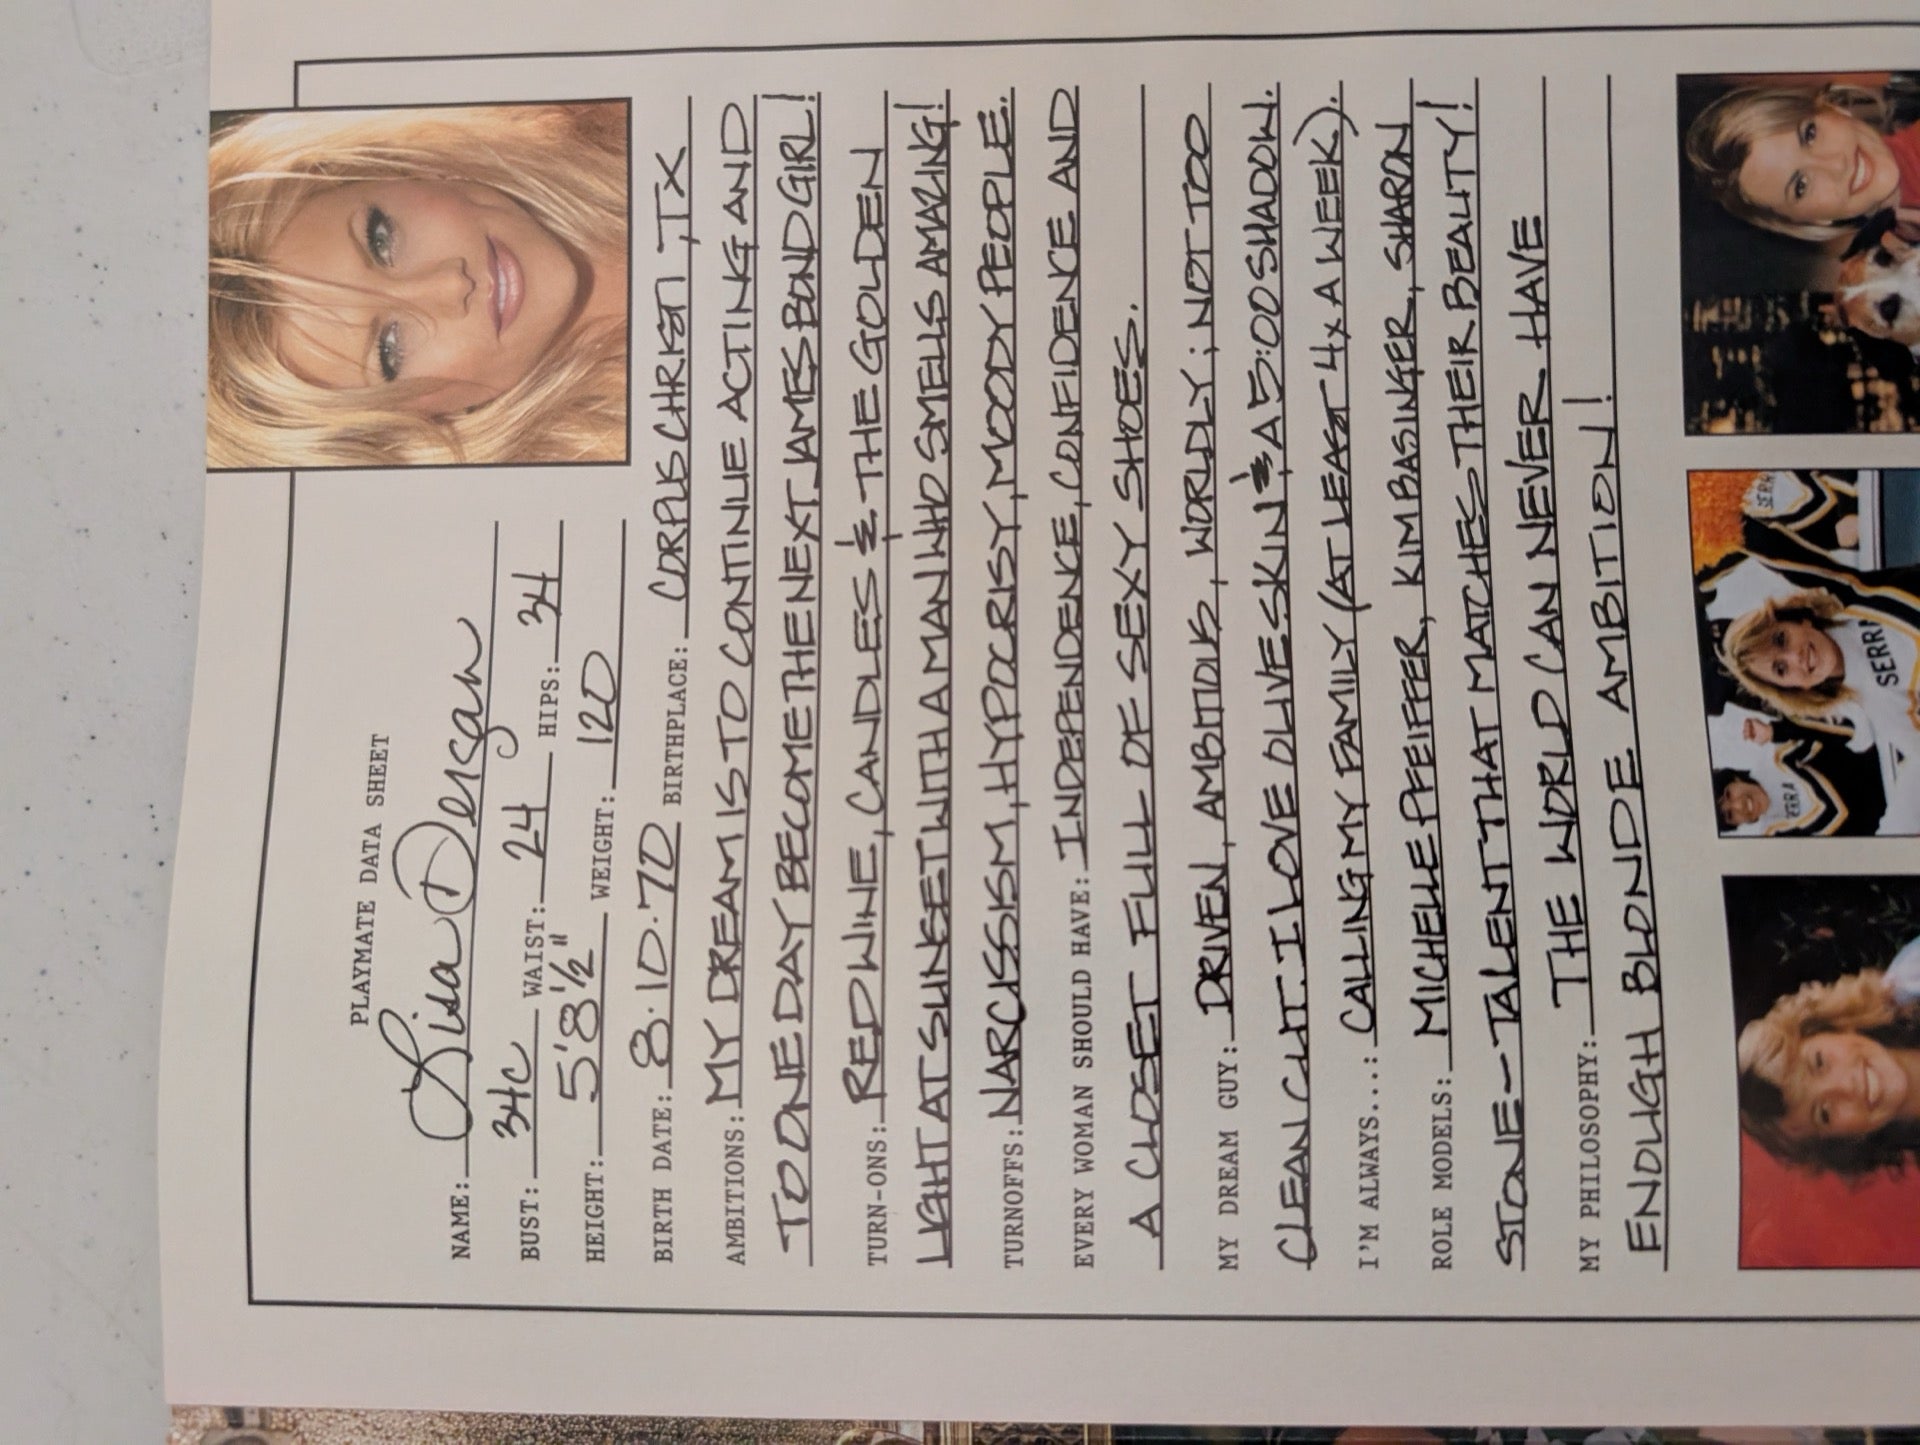 PLAYMATE DATA SHEET
NAME: Lisa Dergan
BUST: 34C WAIST: 24 HIPS: 34
HEIGHT: 5'8 1/2" WEIGHT: 120
BIRTH DATE: 8.10.70 BIRTHPLACE: CORPUS CHRISTI, TX
AMBITIONS: MY DREAM IS TO CONTINUE ACTING AND
TO ONE DAY BECOME THE NEXT JAMES BOND GIRL!
TURN-ONS: RED WINE, CANDLES & THE GOLDEN
LIGHT AT SUNSET WITH A MAN WHO SMELLS AMAZING!
TURNOFFS: NARCISSISM, HYPOCRISY, MOODY PEOPLE.
EVERY WOMAN SHOULD HAVE: INDEPENDENCE, CONFIDENCE AND
A CLOSET FULL OF SEXY SHOES.
MY DREAM GUY: DRIVEN, AMBITIOUS, WORLDLY; NOT TOO
CLEAN CUT. I LOVE OLIVE SKIN & A 5:00 SHADOW.
I'M ALWAYS...: CALLING MY FAMILY (AT LEAST 4x A WEEK).
ROLE MODELS: MICHELLE PFEIFFER, KIM BASINGER, SHARON
STONE - TALENT THAT MATCHES THEIR BEAUTY!
MY PHILOSOPHY: THE WORLD CAN NEVER HAVE
ENOUGH BLONDE AMBITION!
SERRA
SERR